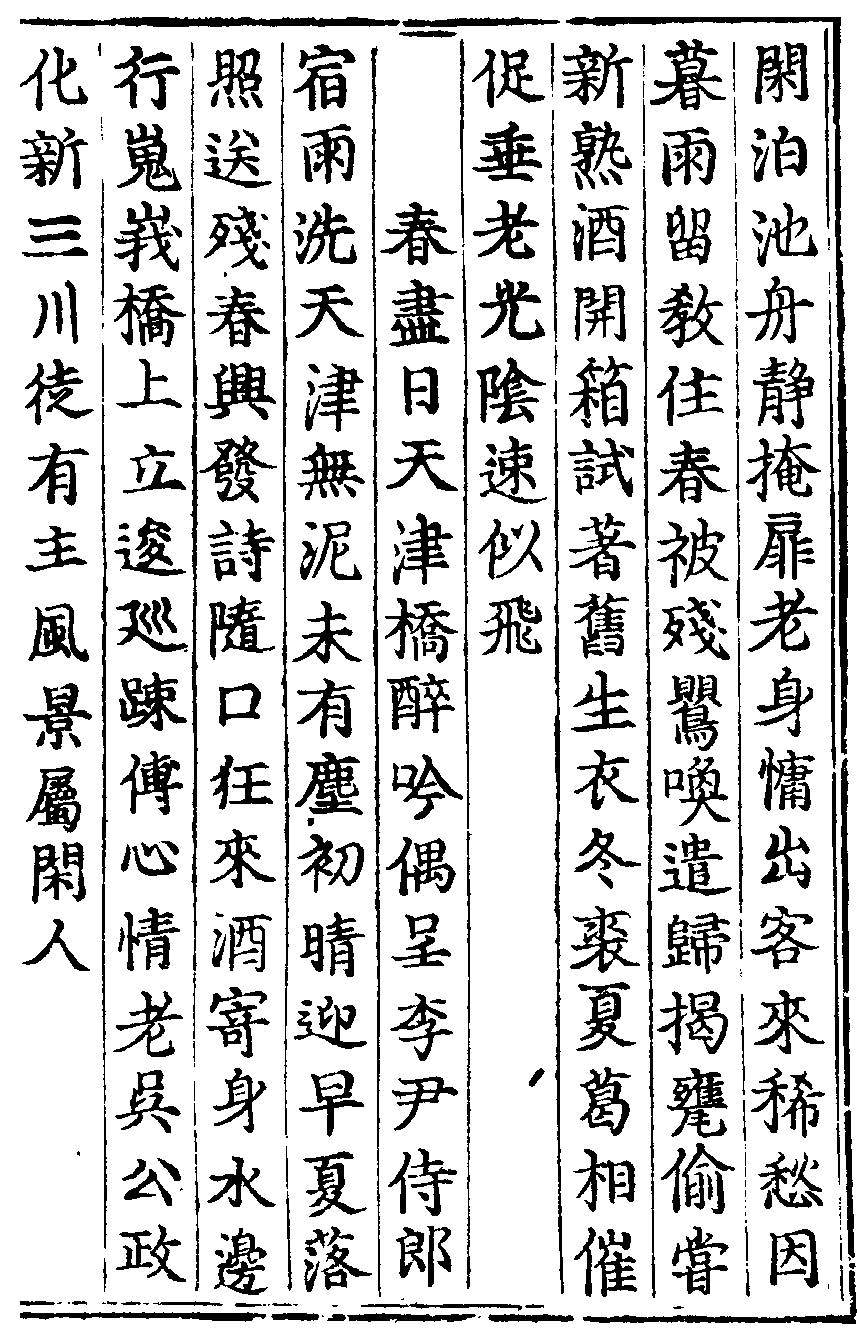 閑泊池舟静掩扉老身慵出客來稀愁因
暮雨留教住春被殘鸎喚遣歸揭甕偷甞
新熟酒開箱試著舊生衣冬裘夏葛相催
促垂老光陰速似飛
春盡日天津橋醉吟偶呈李尹侍郎
宿雨洗天津無泥未有塵初晴迎早夏落
照送殘春興發詩隨口狂來酒寄身水邊
行嵬峩橋上立逡巡踈傅心情老吳公政
化新三川徒有主風景屬閑人